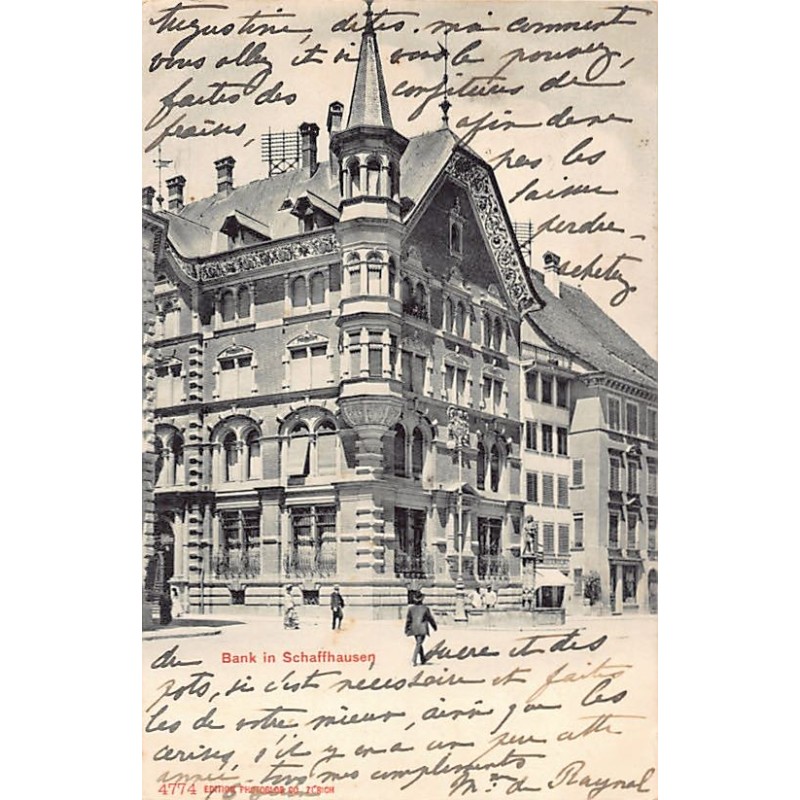 Augustine, dites-moi comment
vous allez et si vous le pouvez,
faites des confitures de
fraises, afin de ne
pas les
laisser
perdre -
achetez
du sucre et des
Bank in Schaffhausen
pots, si c'est nécessaire et faites
les de votre mieux, ainsi que les
cerises, s'il y en a un peu cette
année - tous mes compliments
Mme de Raynal
4774 EDITION PHOTOGLOB CO. ZÜRICH